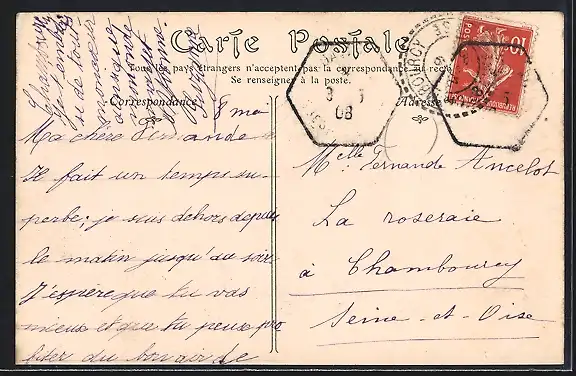 Carte Postale
Tous les pays étrangers n'acceptent pas la correspondance au recto
Se renseigner à la poste.
Correspondance
Adresse
8 mai
Ma chère Fernande
Il fait un temps su-
perbe; je suis dehors depuis
le matin jusqu'au soir.
J'espère que tu vas
mieux et que tu peux pro
fiter du bon air de
Chambourcy.
Je t'embra
se de tout
mon coeur
Suzanne
Melle Fernande Ancelot
La roseraie
à Chambourcy
Seine-et-Oise
8
08
10